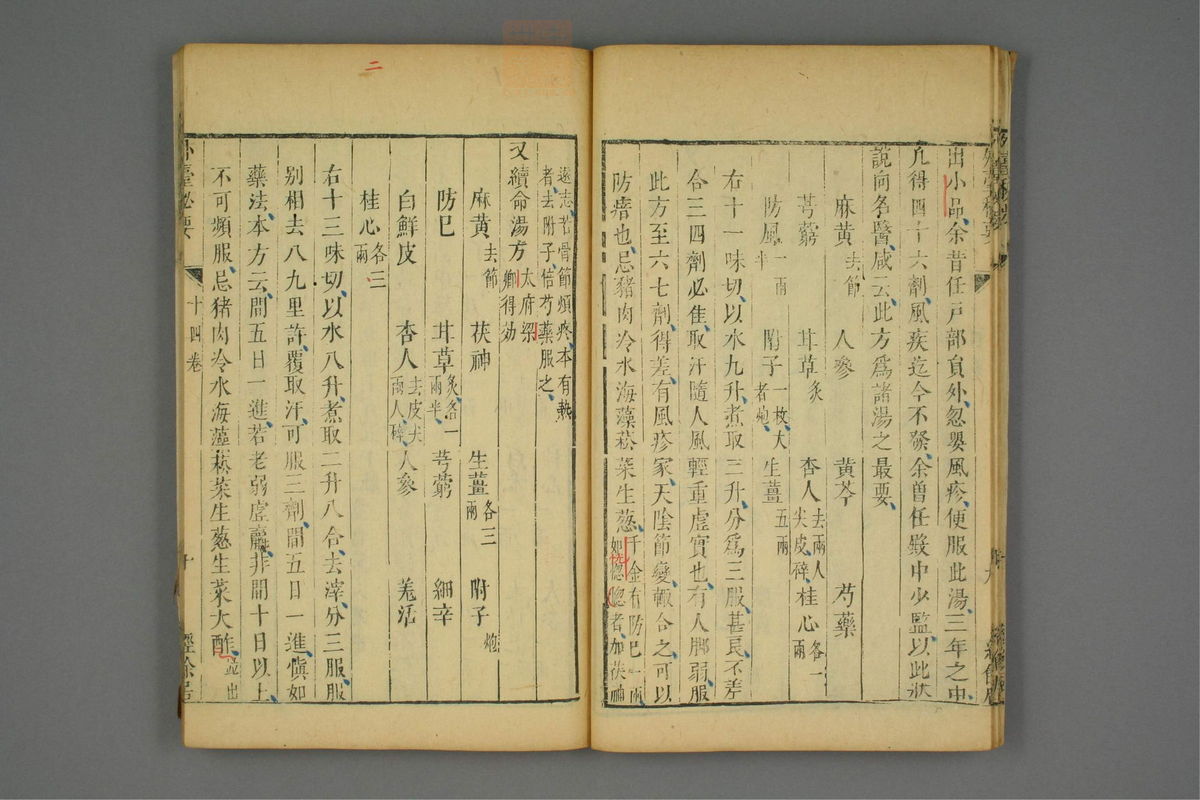 出小品余昔任戸部員外忽嬰風疹便服此湯三年之中
凢得四十六劑風疾迄今不發余曾任殿中少監以此狀
說向名醫咸云此方爲諸湯之最要
麻黃去節 人參 黃芩 芍藥
芎藭 甘草炙 杏人去兩人尖皮碎 桂心各一兩
防風一兩半 附子一枚大者炮 生薑五兩
右十一味切以水九升煮取三升分爲三服甚良不差
合三四劑必佳取汗隨人風輕重虛實也有人脚弱服
此方至六七劑得差有風疹家天陰節變輙合之可以
防瘖也忌豬肉冷水海藻菘菜生葱千金有防巳一兩如恍惚者加茯神
遠志若骨節煩疼本有熱者去附子倍芍藥服之
又續命湯方太府梁卿得効
麻黃去節 茯神 生薑各三兩 附子炮
防巳 甘草炙各一兩半 芎藭 細辛
白鮮皮 杏人去皮尖兩人碎 人參 羗活
桂心各二兩
右十三味切以水八升煮取二升八合去滓分三服服
别相去八九里許覆取汗可服三劑間五日一進愼如
藥法本方云間五日一進若老弱虛羸非間十日以上
不可頻服忌豬肉冷水海藻菘菜生葱生菜大酢並出
外臺必要
十四卷
十
經餘居
二